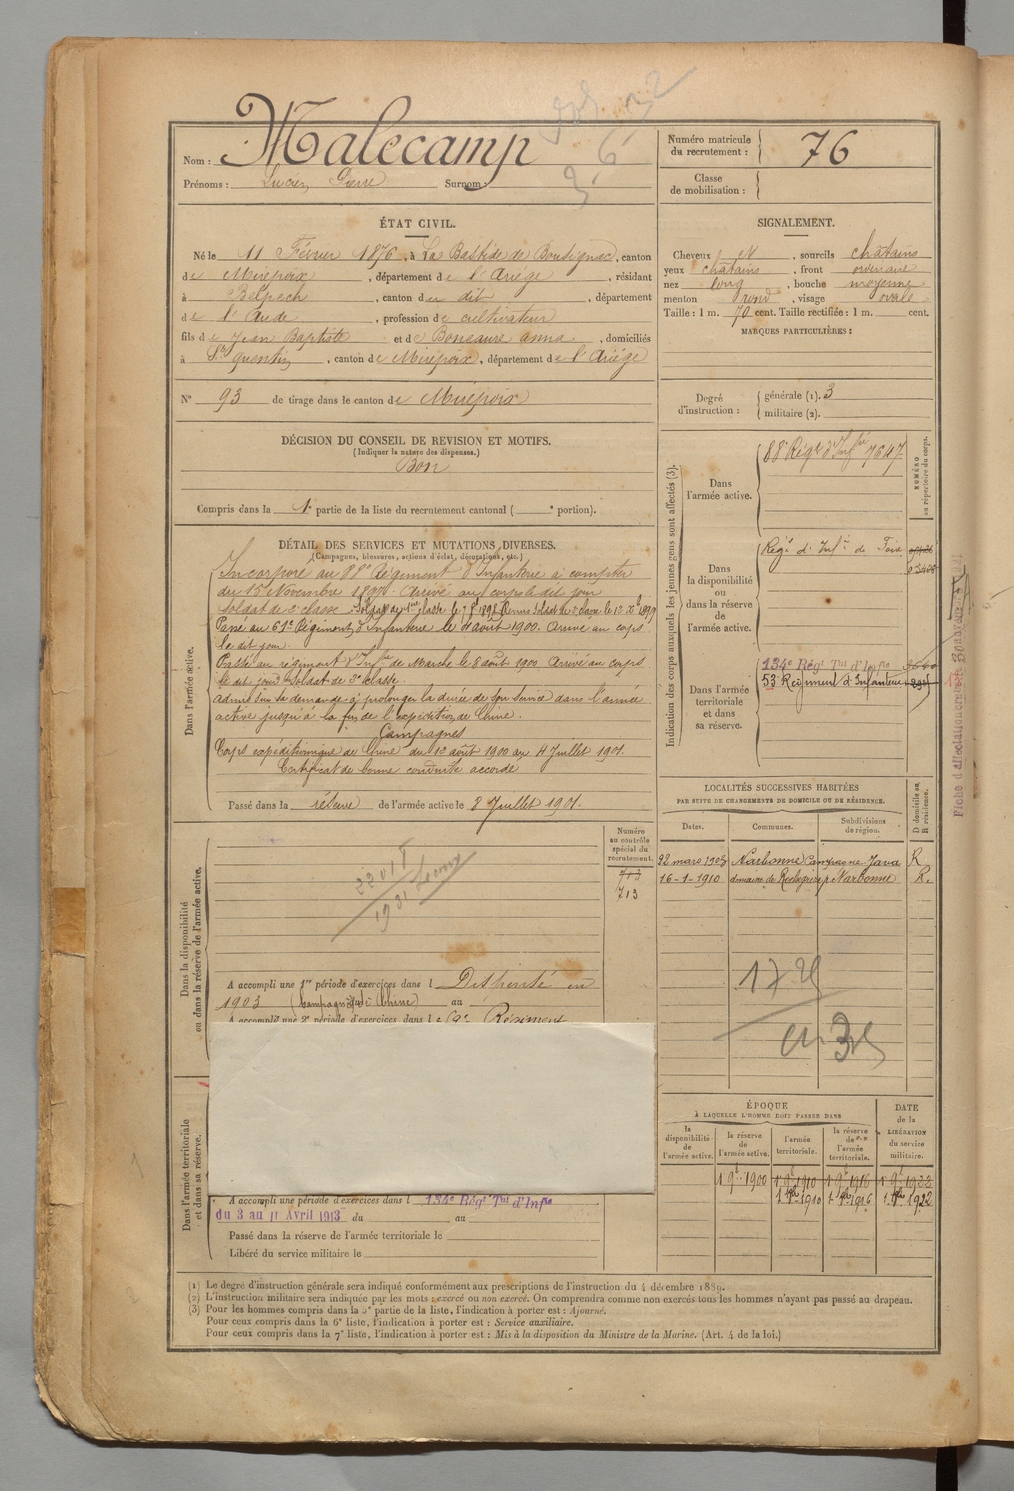 Nom : Malecamp
Prénoms : Lucien Pierre Surnom :
Numéro matricule
du recrutement : 76
Classe
de mobilisation :
ÉTAT CIVIL.
Né le 11 Février 1876, à La Bastide de Bousignac, canton
de Mirepoix, département de l'Ariège, résidant
à Belpech, canton du dit, département
de l'Aude, profession de cultivateur
fils de Jean Baptiste et de Boneaure anna, domiciliés
à St quentin, canton de Mirepoix, département de l'Ariège
N° 93 de tirage dans le canton de Mirepoix
SIGNALEMENT.
Cheveux et, sourcils chatains
yeux chatains, front ordinaire
nez long, bouche moyenne
menton rond, visage ovale
Taille : 1 m. 70 cent. Taille rectifiée : 1 m. cent.
MARQUES PARTICULIÈRES :
Degré
d'instruction :
générale (1). 3
militaire (2).
DÉCISION DU CONSEIL DE REVISION ET MOTIFS.
(Indiquer la nature des dispenses.)
Bon
Compris dans la 1e partie de la liste du recrutement cantonal ( e portion).
DÉTAIL DES SERVICES ET MUTATIONS DIVERSES.
(Campagnes, blessures, actions d'éclat, décorations, etc.)
Dans l'armée active.
Incorporé au 88e Régiment d'Infanterie à compter
du 15 Novembre 1897. Arrivé au corps le dit jour
soldat de 2e classe. Soldat de 1ère classe le
Passé au 61e Régiment d'Infanterie le août 1900. Arrivé au corps
le dit jour.
Passé au régiment d'Infrie de Marche le 8 août 1900 Arrivé au corps
le dit jour Soldat de 2e classe.
admis sur sa demande à prolonger la durée de son service dans l'armée
active jusqu'à la fin de l'expédition de Chine.
Campagnes
Corps expéditionnaire de Chine du 12 août 1900 au 4 Juillet 1901.
Certificat de bonne conduite accordé
Passé dans la réserve de l'armée active le 8 Juillet 1901.
Indication des corps auxquels les jeunes gens sont affectés (3).
NUMÉRO
au répertoire du corps.
Dans
l'armée active.
88e Régt d'Infrie 7647
Dans
la disponibilité
ou
dans la réserve
de
l'armée active.
Régt d'Infie de Foix
Dans l'armée
territoriale
et dans
sa réserve.
134e Régt Tal d'Infie
53 Régiment d'Infanterie
LOCALITÉS SUCCESSIVES HABITÉES
PAR SUITE DE CHANGEMENTS DE DOMICILE OU DE RÉSIDENCE.
Dates. Communes. Subdivisions
de région.
D domicile ou
R résidence.
22 mars 1903 Narbonne Campagne Java R
16-1-1910 domaine de Narbonne R.
Dans la disponibilité
ou dans la réserve de l'armée active.
Numéro
au contrôle
spécial du
recrutement.
713
713
A accompli une 1re période d'exercices dans l Dispensé en
1903 (Campagne de Chine) au
A accompli une 2e période d'exercices dans le Régiment
Dans l'armée territoriale
et dans sa réserve.
A accompli une période d'exercices dans l 134e Régt Tal d'Infie
du 3 au 11 Avril 1913 du au
Passé dans la réserve de l'armée territoriale le
Libéré du service militaire le
ÉPOQUE
À LAQUELLE L'HOMME DOIT PASSER DANS
DATE
de la
LIBÉRATION
du service
militaire.
la
disponibilité
de
l'armée active.
la réserve
de
l'armée active.
l'armée
territoriale.
la réserve
de
l'armée
territoriale.
1 9e 1900 1 9e 1910 1 9e 1916 1 9e 1922
1910 1916 1922
(1) Le degré d'instruction générale sera indiqué conformément aux prescriptions de l'instruction du 4 décembre 1889.
(2) L'instruction militaire sera indiquée par les mots : exercé ou non exercé. On comprendra comme non exercés tous les hommes n'ayant pas passé au drapeau.
(3) Pour les hommes compris dans la 5e partie de la liste, l'indication à porter est : Ajourné.
Pour ceux compris dans la 6e liste, l'indication à porter est : Service auxiliaire.
Pour ceux compris dans la 7e liste, l'indication à porter est : Mis à la disposition du Ministre de la Marine. (Art. 4 de la loi.)